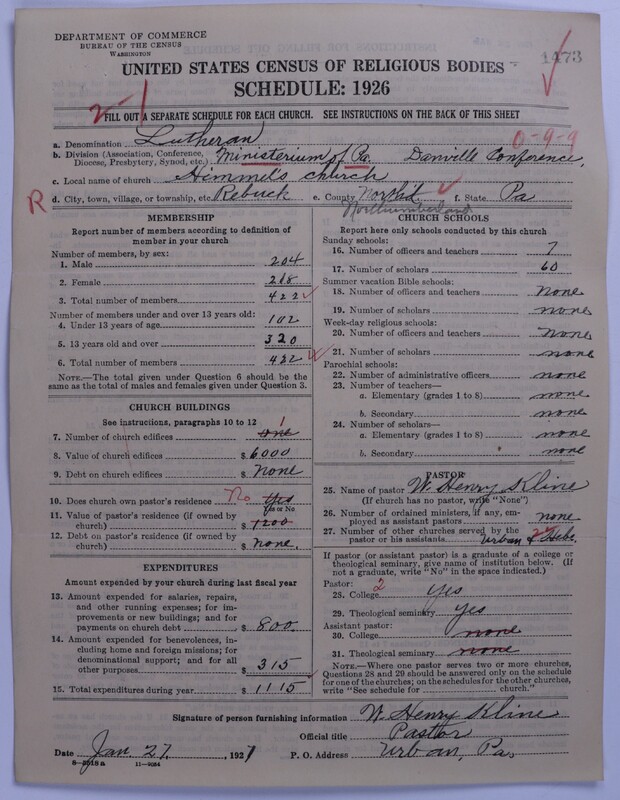 DEPARTMENT OF COMMERCE
BUREAU OF THE CENSUS
WASHINGTON
1473
UNITED STATES CENSUS OF RELIGIOUS BODIES
SCHEDULE: 1926
2-1
FILL OUT A SEPARATE SCHEDULE FOR EACH CHURCH. SEE INSTRUCTIONS ON THE BACK OF THIS SHEET
0-9-9
a. Denomination Lutheran
b. Division (Association, Conference, Diocese, Presbytery, Synod, etc.) Ministerium of Pa. Danville Conference,
c. Local name of church Himmel's church
R d. City, town, village, or township, etc. Rebuck e. County North'd. f. State Pa
Northumberland
MEMBERSHIP
Report number of members according to definition of member in your church
Number of members, by sex:
1. Male 204
2. Female 218
3. Total number of members 422
Number of members under and over 13 years old:
4. Under 13 years of age 102
5. 13 years old and over 320
6. Total number of members 422
NOTE.—The total given under Question 6 should be the same as the total of males and females given under Question 3.
CHURCH BUILDINGS
See instructions, paragraphs 10 to 12
7. Number of church edifices one 1
8. Value of church edifices $ 6000
9. Debt on church edifices $ None
10. Does church own pastor's residence No Yes
Yes or No
11. Value of pastor's residence (if owned by church) $ 1200
12. Debt on pastor's residence (if owned by church) $ none.
EXPENDITURES
Amount expended by your church during last fiscal year
13. Amount expended for salaries, repairs, and other running expenses; for improvements or new buildings; and for payments on church debt $ 800
14. Amount expended for benevolences, including home and foreign missions; for denominational support; and for all other purposes $ 315
15. Total expenditures during year $ 1115
CHURCH SCHOOLS
Report here only schools conducted by this church
Sunday schools:
16. Number of officers and teachers 7
17. Number of scholars 60
Summer vacation Bible schools:
18. Number of officers and teachers none
19. Number of scholars none
Week-day religious schools:
20. Number of officers and teachers none
21. Number of scholars none
Parochial schools:
22. Number of administrative officers none
23. Number of teachers—
a. Elementary (grades 1 to 8) none
b. Secondary none
24. Number of scholars—
a. Elementary (grades 1 to 8) none
b. Secondary none
PASTOR
25. Name of pastor W. Henry Kline
(If church has no pastor, write "None")
26. Number of ordained ministers, if any, employed as assistant pastors none
27. Number of other churches served by the pastor or his assistants Urban & Hebe.
If pastor (or assistant pastor) is a graduate of a college or theological seminary, give name of institution below. (If not a graduate, write "No" in the space indicated.)
Pastor: 2
28. College yes
29. Theological seminary yes
Assistant pastor:
30. College none
31. Theological seminary none
NOTE.—Where one pastor serves two or more churches, Questions 28 and 29 should be answered only on the schedule for one of the churches; on the schedules for the other churches, write "See schedule for church."
Signature of person furnishing information W. Henry Kline
Official title Pasttor
Date Jan 27, 1927 P. O. Address Urban, Pa.
8—5518 a 11—9084